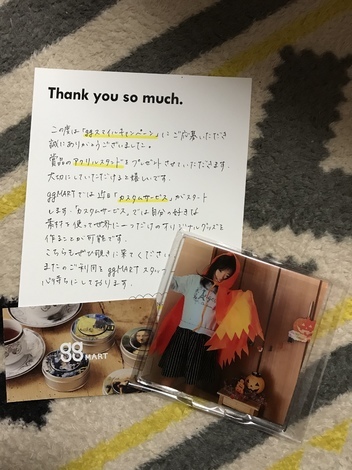 Thank you so much.
この度は「ggスマイルキャンペーン」にご応募いただき
誠にありがとうございました。
賞品のアクリルスタンドをプレゼントさせていただきます。
大切にしていただけると嬉しいです。
ggMARTでは近日「カスタムサービス」がスタート
します。「カスタムサービス」では自分の好きな
素材を使って世界に一つだけのオリジナルグッズを
作ることが可能です。
こちらもぜひ覗きに来てください
またのご利用をggMARTスタッフ
心待ちにしております。
gg
MART